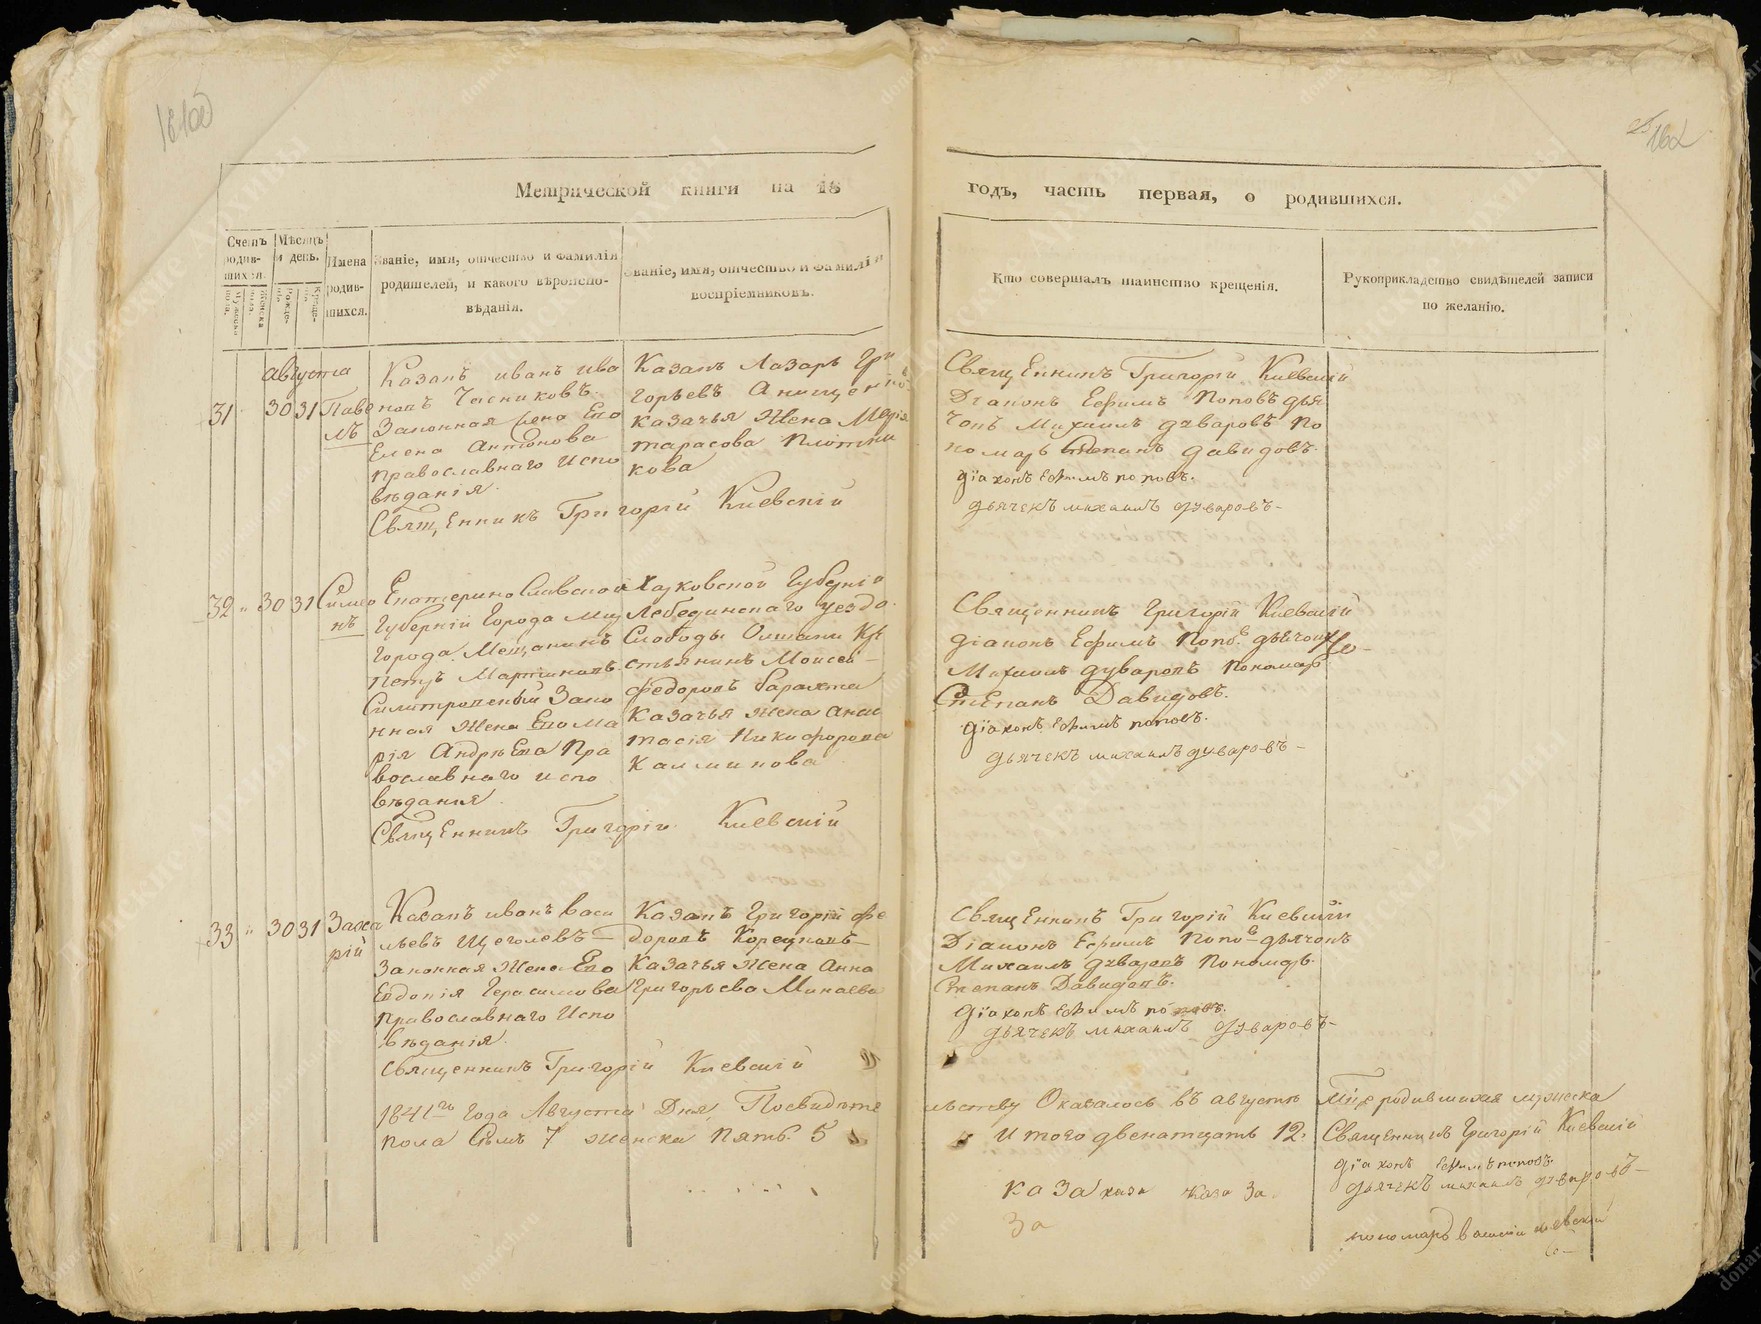 Метрической книги на 18
годъ, часть первая, о родившихся.
Счетъ родив-шихся.
Мѣсяцъ и день.
Имена родив-шихся.
Званіе, имя, отчество и фамилія родителей, и какого вѣроиспо-вѣданія.
Званіе, имя, отчество и фамилія воспріемниковъ.
Кто совершалъ таинство крещенія.
Рукоприкладство свидѣтелей записи по желанію.
Августа
31 30 31 Паве
лъ
Казакъ иванъ ива
новъ Часниковъ
Законная жена Его
Елена Антонова
православнаго испо
вѣданія.
Священникъ Григорій Киевскій
Казакъ Лазарь Гри
горьевъ
казачья Жена Марія
тарасова Плотни
кова
Священникъ Григорій Киевскій
Діаконъ Ефимъ Поповъ дья
чокъ Михаилъ Дуваровъ По
номарь Степанъ Давидовъ.
Діаконъ Ефимъ поповъ.
дьячекъ михаилъ дуваровъ
32 " 30 31 Симео
нъ
Екатеринославской
Губерніи Города
Города Мещанинъ
петръ Мартиновъ
Зако
нная Жена Его Ма
рія Андрѣева Пра
вославнаго испо
вѣданія.
Священникъ Григорій Киевскій
Харковской Губерніи
Лебединскаго уезда
Слободы Кре
стьянинъ Моисей
федоровъ
Казачья жена Анас
тасія Никифорова
Калминова
Священникъ Григорій Киевскій
діаконъ Ефимъ Поповъ дьячокъ
Михаилъ дуваровъ пономарь
Степанъ Давидовъ.
Діаконъ Ефимъ поповъ.
дьячекъ михаилъ дуваровъ
33 " 30 31 Заха
рій
Казакъ иванъ Васи
льевъ Щеголевъ
Законная Жена Его
Евдокія Герасимова
православнаго испо
вѣданія.
Священникъ Григорій Киевскій
Казакъ Григорій фе
доровъ
Казачья жена Анна
Григорьева Минаева
Священникъ Григорій Киевскій
Діаконъ Ефимъ Поповъ дьячокъ
Михаилъ дуваровъ пономарь
Степанъ Давидовъ.
Діаконъ Ефимъ поповъ.
дьячекъ михаилъ дуваровъ
1841го Года Августа Дня, Посвидѣте
льству Оказалось въ августѣ м-цѣ родившихся мужеска
пола Семь 7 женска пять 5
Итого двенатцать 12.
Священникъ Григорій Киевскій
Діаконъ Ефимъ поповъ.
дьячекъ михаилъ дуваровъ
каза
За
пономарь